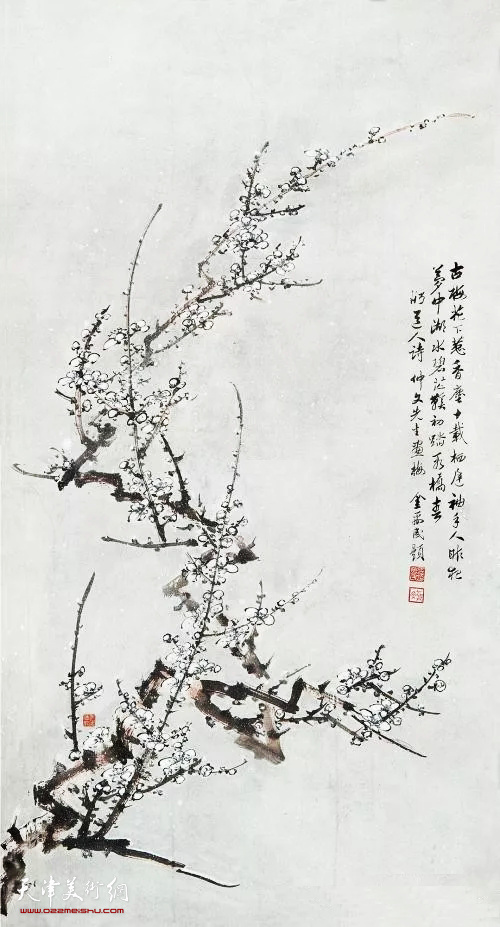 古梅花下惹香塵十載栖遲袖手人昨夜
夢中湖水碧芒鞵初踏段橋春
道人诗 仲文先生畫梅 金禹民題
天津美術網
www.022meishu.com